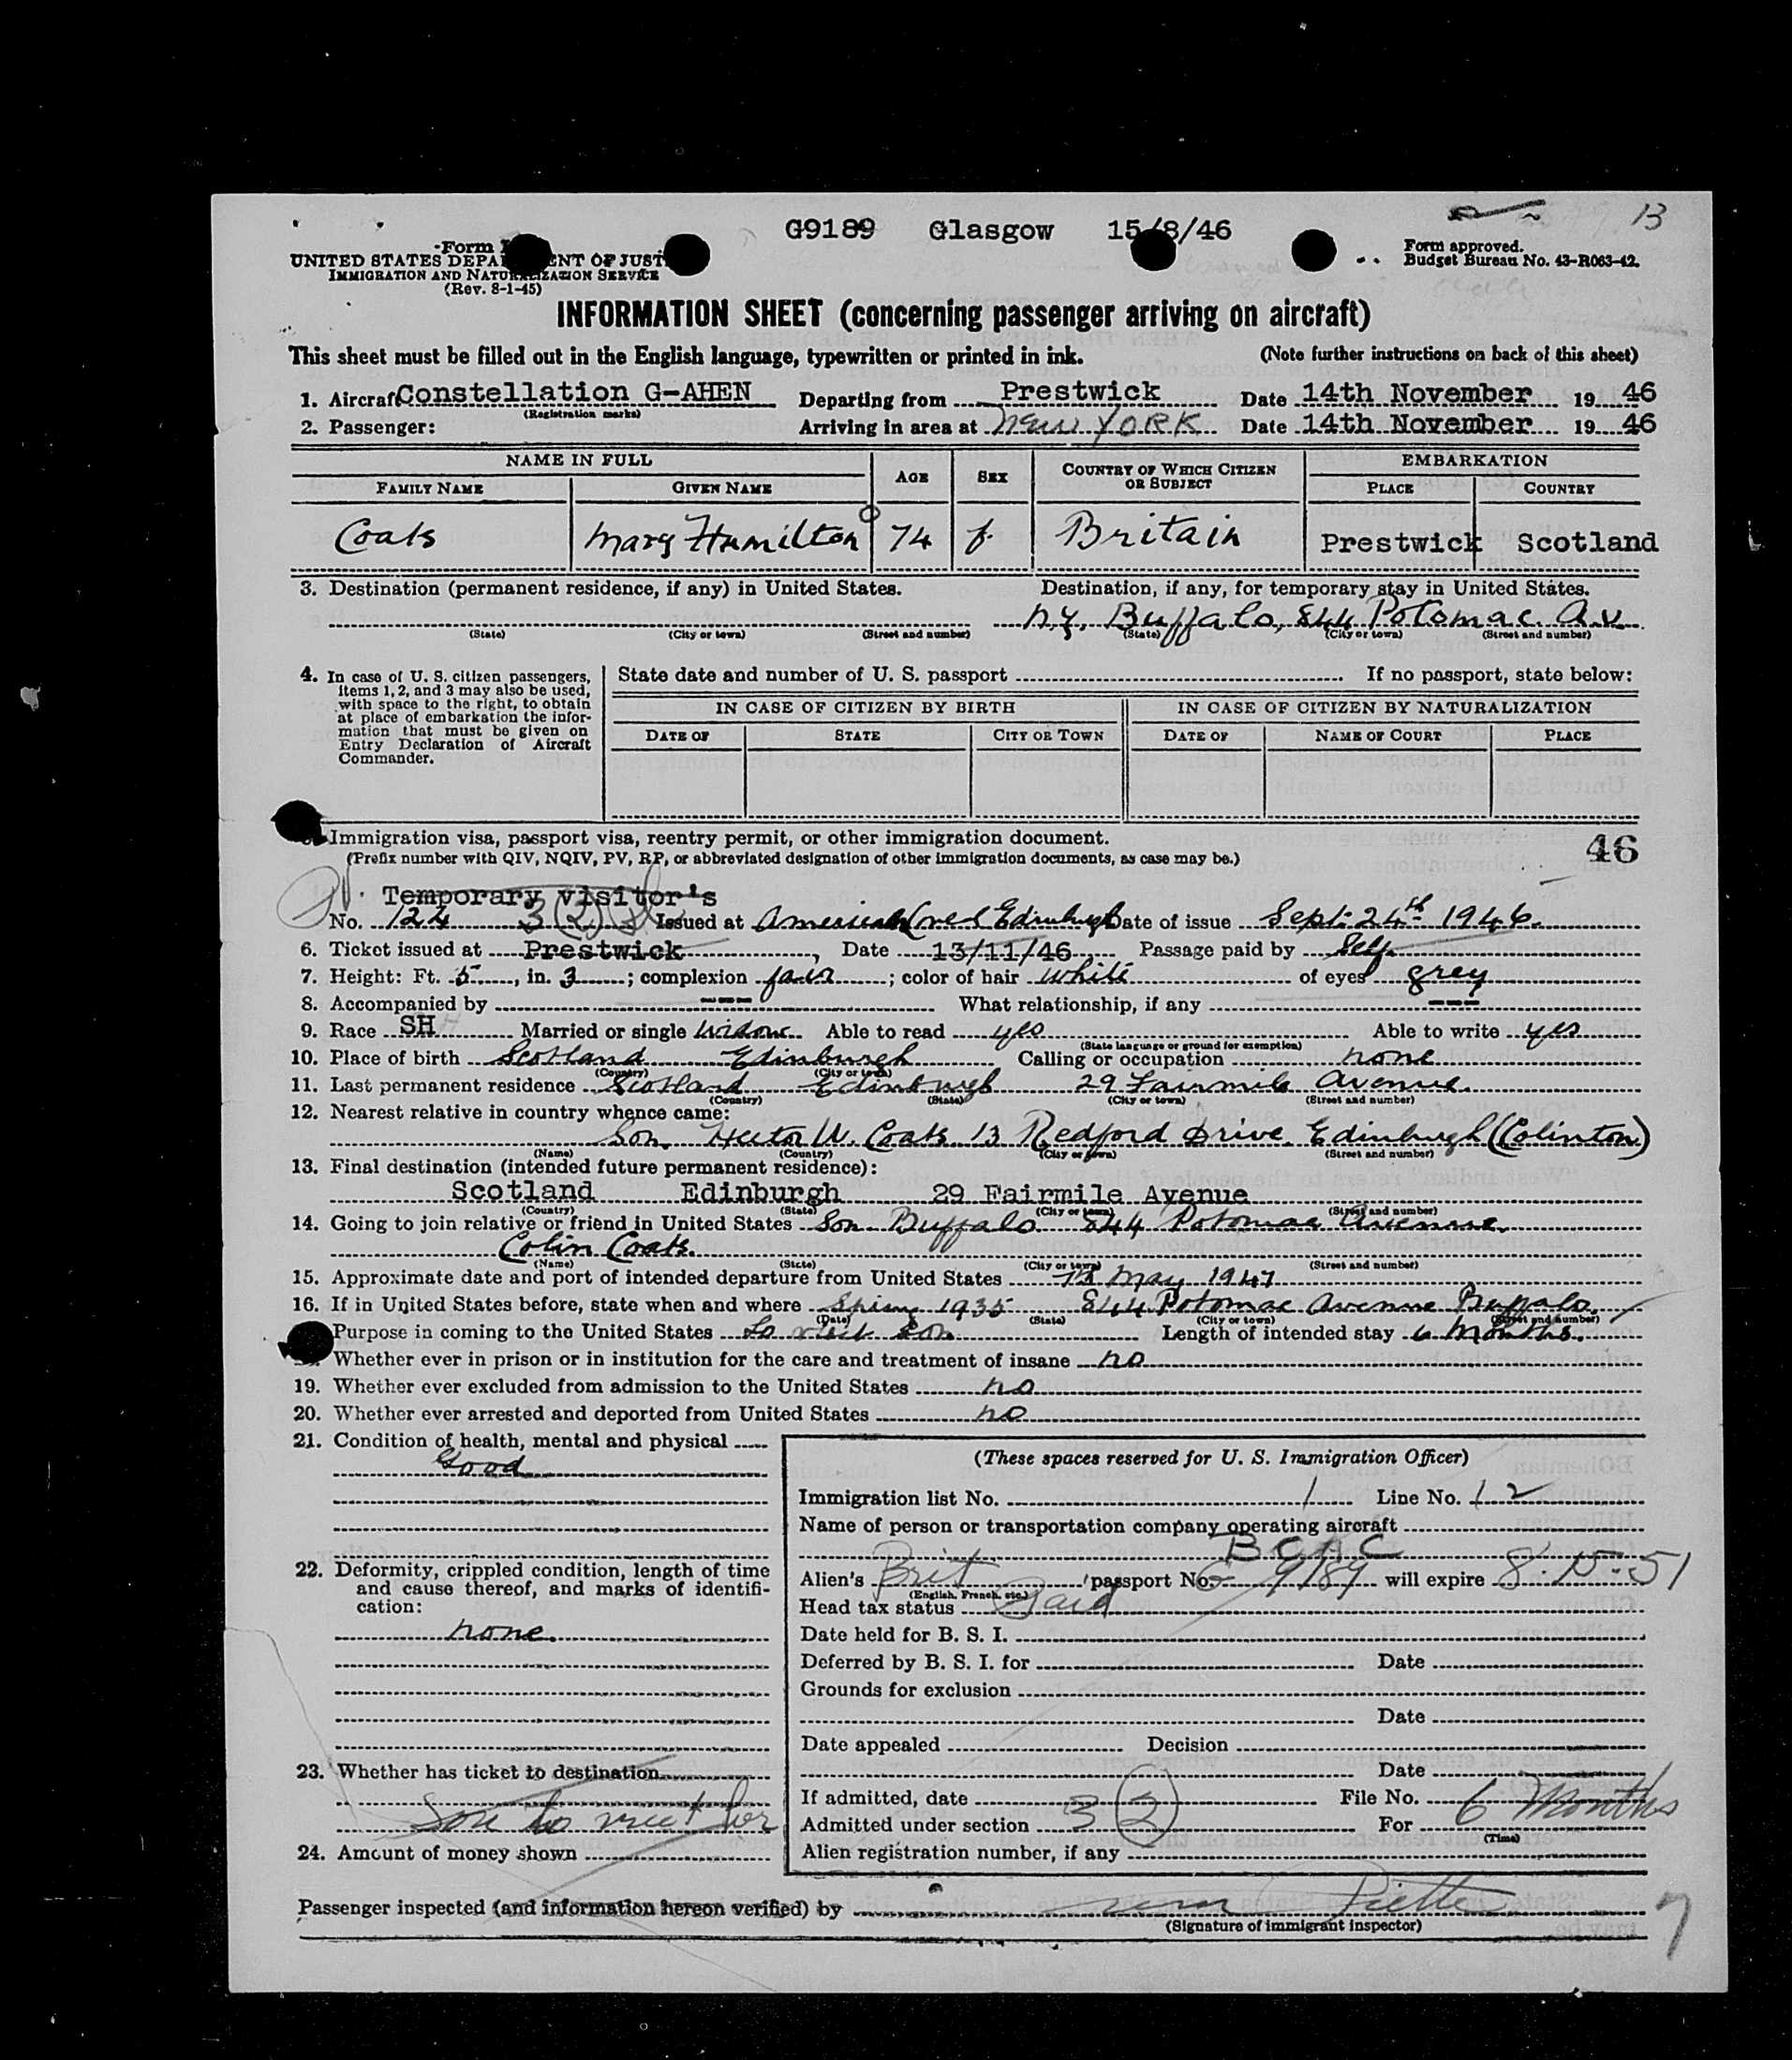 13
G9189 Glasgow 15/8/46
Form
UNITED STATES DEPARTMENT OF JUSTICE
IMMIGRATION AND NATURALIZATION SERVICE
(Rev. 8-1-45)
Form approved.
Budget Bureau No. 43-R063-42.
INFORMATION SHEET (concerning passenger arriving on aircraft)
This sheet must be filled out in the English language, typewritten or printed in ink. (Note further instructions on back of this sheet)
1. Aircraft Constellation G-AHEN Departing from Prestwick Date 14th November 19 46
(Registration marks)
2. Passenger: Arriving in area at New YORK Date 14th November 19 46
NAME IN FULL AGE SEX COUNTRY OF WHICH CITIZEN OR SUBJECT EMBARKATION
FAMILY NAME GIVEN NAME PLACE COUNTRY
Coats Mary Hamilton 74 f. Britain Prestwick Scotland
3. Destination (permanent residence, if any) in United States. Destination, if any, for temporary stay in United States.
N.Y. Buffalo, 844 Potomac Av.
(State) (City or town) (Street and number) (State) (City or town) (Street and number)
4. In case of U. S. citizen passengers, items 1, 2, and 3 may also be used, with space to the right, to obtain at place of embarkation the information that must be given on Entry Declaration of Aircraft Commander.
State date and number of U. S. passport If no passport, state below:
IN CASE OF CITIZEN BY BIRTH IN CASE OF CITIZEN BY NATURALIZATION
DATE OF STATE CITY OR TOWN DATE OF NAME OF COURT PLACE
Immigration visa, passport visa, reentry permit, or other immigration document.
(Prefix number with QIV, NQIV, PV, RP, or abbreviated designation of other immigration documents, as case may be.)
46
Temporary visitor's
No. 124 3(2) Issued at American Edinburgh Date of issue Sept. 24th 1946.
6. Ticket issued at Prestwick, Date 13/11/46 Passage paid by Self.
7. Height: Ft. 5, in. 3; complexion fair; color of hair white of eyes grey
8. Accompanied by --- What relationship, if any ---
9. Race SH Married or single Widow Able to read yes Able to write yes
(State language or ground for exemption)
10. Place of birth Scotland Edinburgh Calling or occupation none
(Country) (City or town)
11. Last permanent residence Scotland Edinburgh 29 Fairmile Avenue.
(Country) (State) (City or town) (Street and number)
12. Nearest relative in country whence came:
Son Hector W. Coats 13 Redford Drive Edinburgh (Colinton)
(Name) (Country) (City or town) (Street and number)
13. Final destination (intended future permanent residence):
Scotland Edinburgh 29 Fairmile Avenue
(Country) (State) (City or town) (Street and number)
14. Going to join relative or friend in United States Son Buffalo 844 Potomac Avenue.
Colin Coats.
(Name) (State) (City or town) (Street and number)
15. Approximate date and port of intended departure from United States May 1947
16. If in United States before, state when and where Spring 1935 844 Potomac Avenue Buffalo.
(Date) (State) (City or town) (Street and number)
Purpose in coming to the United States To visit Son Length of intended stay 6 Months.
Whether ever in prison or in institution for the care and treatment of insane no
19. Whether ever excluded from admission to the United States no
20. Whether ever arrested and deported from United States no
21. Condition of health, mental and physical
Good
22. Deformity, crippled condition, length of time and cause thereof, and marks of identification:
none.
23. Whether has ticket to destination
Son to meet her
24. Amount of money shown
(These spaces reserved for U. S. Immigration Officer)
Immigration list No. 1 Line No. 12
Name of person or transportation company operating aircraft
BOAC
Alien's Brit passport No. G 9189 will expire 8.15.51
(English, French, etc.)
Head tax status Paid
Date held for B. S. I.
Deferred by B. S. I. for Date
Grounds for exclusion
Date
Date appealed Decision
Date
If admitted, date File No.
Admitted under section 3(2) For 6 Months
(Time)
Alien registration number, if any
Passenger inspected (and information hereon verified) by
(Signature of immigrant inspector)
7